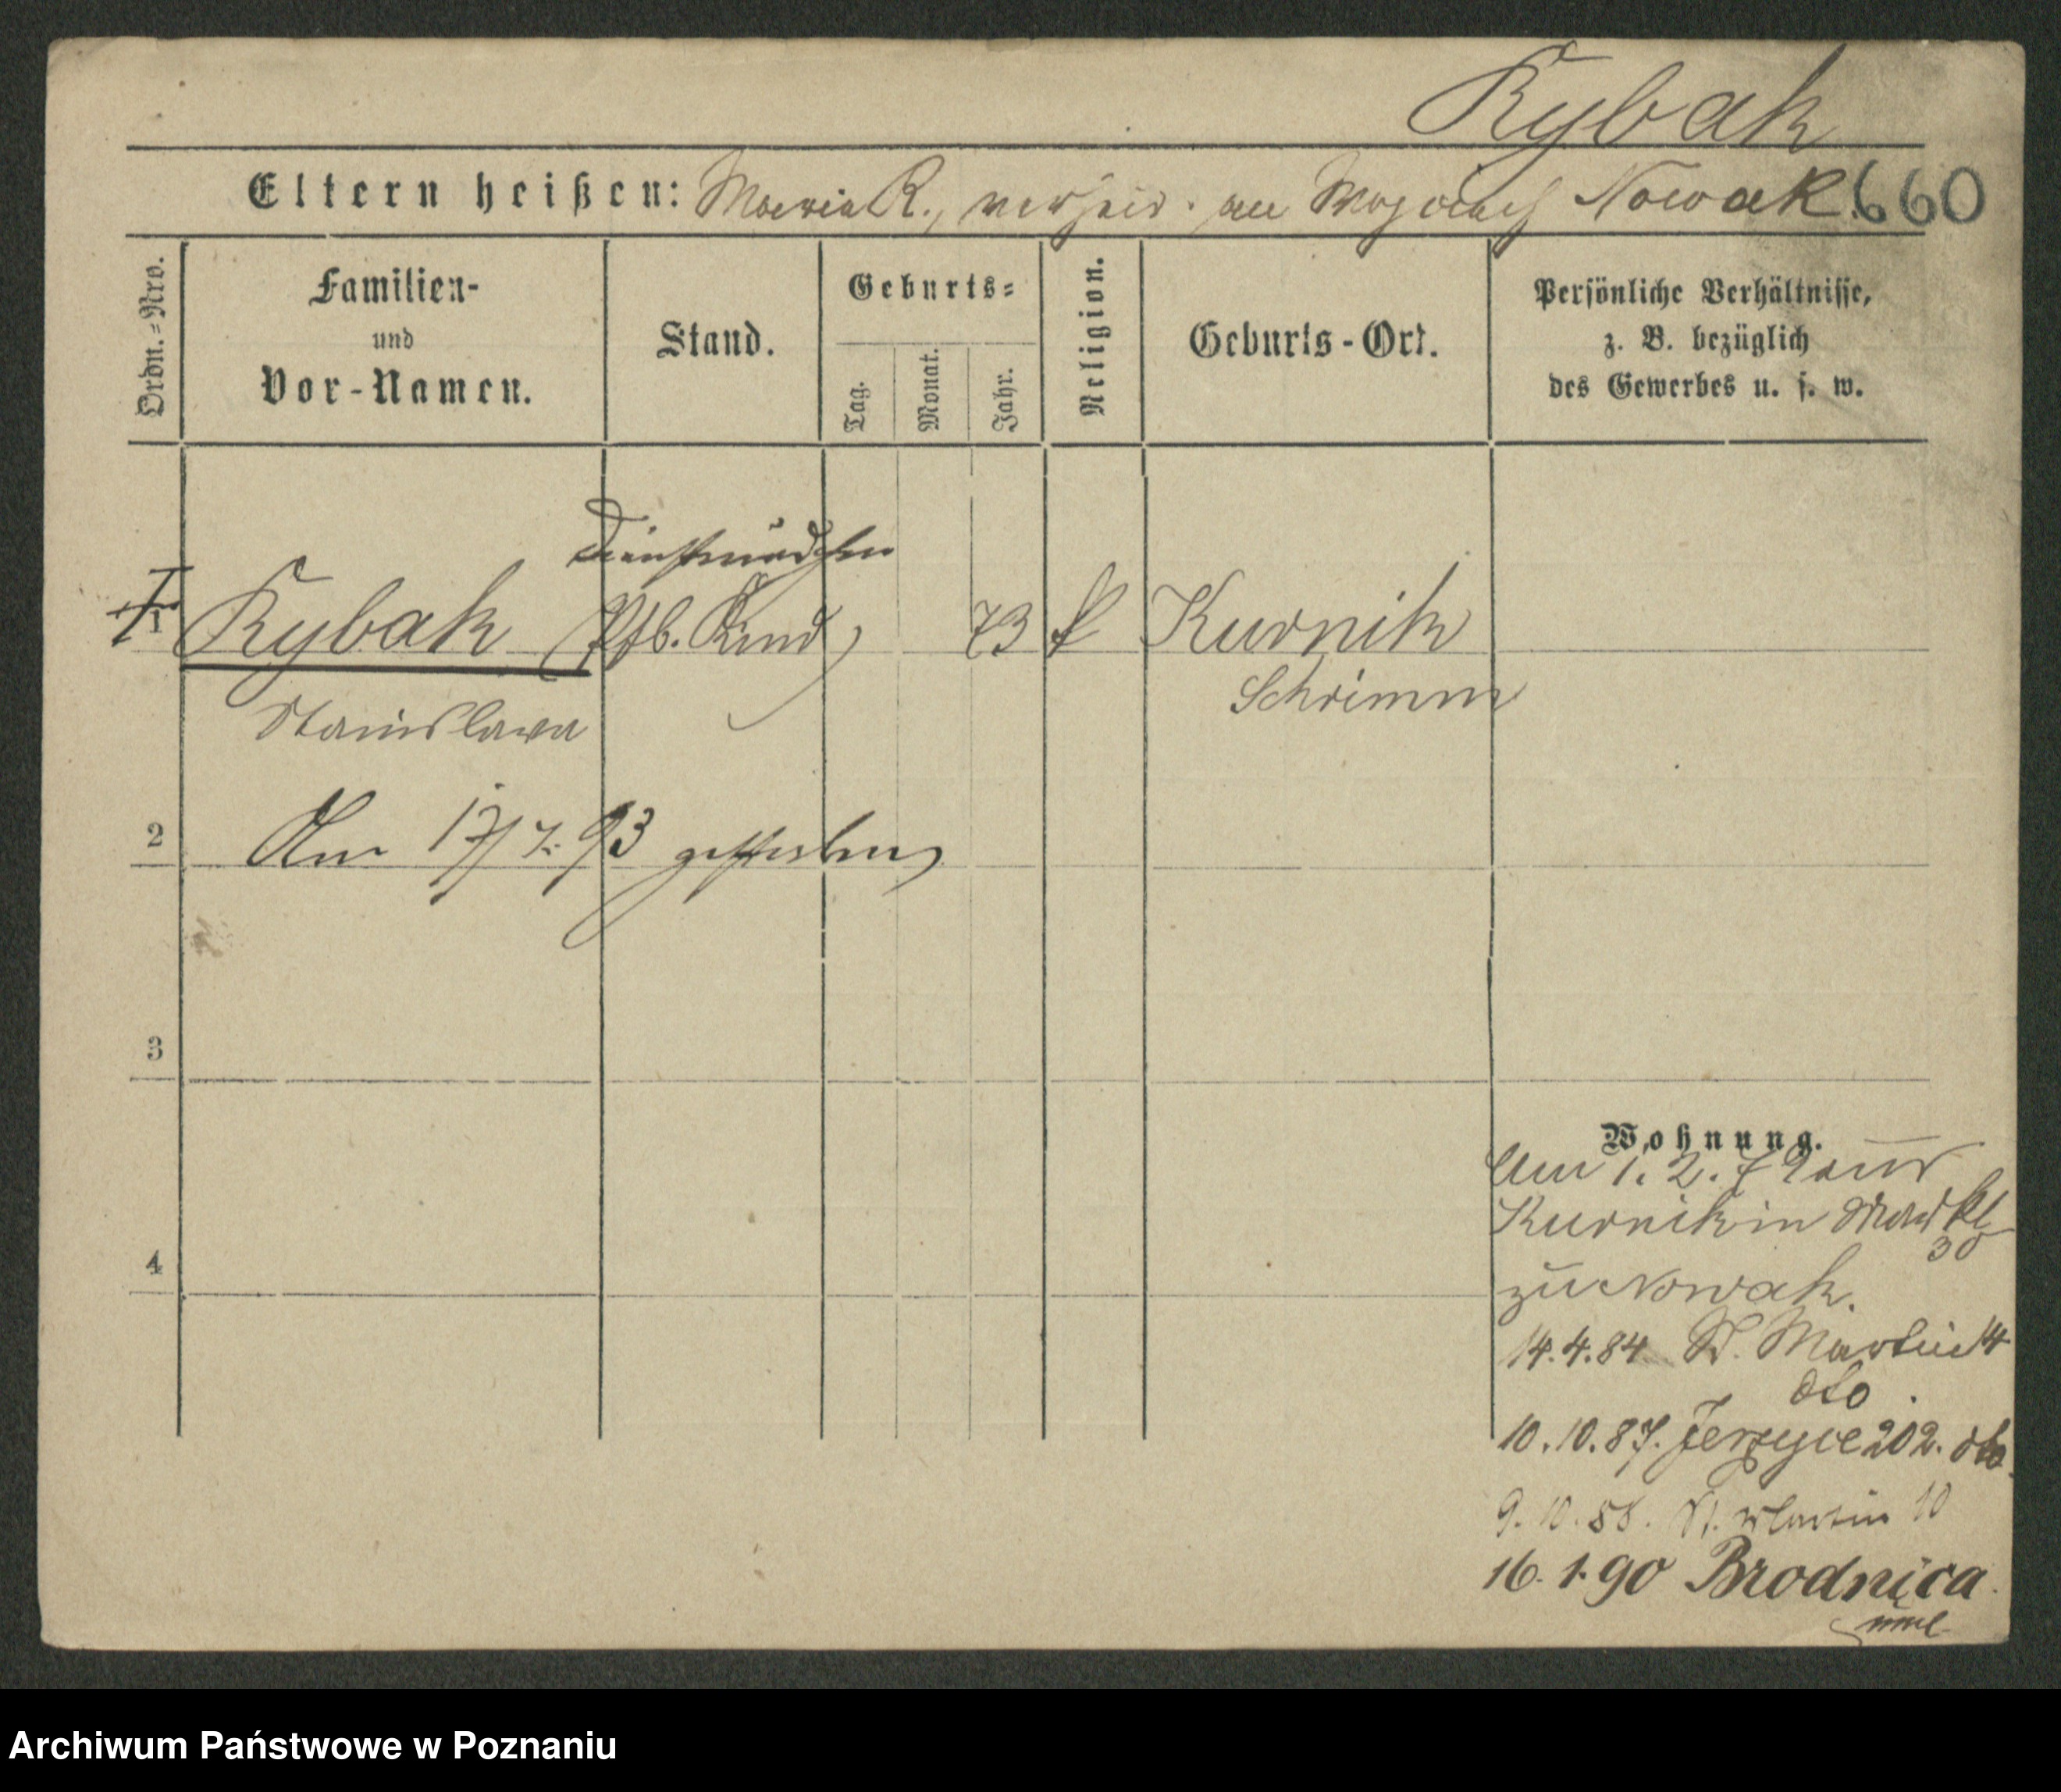 Rybak
Eltern heißen: Maria R., verheir. an Woyciech Nowak. 660
Ordn.=Nro.
Familien-
und
Vor-Namen.
Stand.
Geburts=
Tag.
Monat.
Jahr.
Religion.
Geburts-Ort.
Persönliche Verhältnisse,
z. B. bezüglich
des Gewerbes u. s. w.
Dienstmädchen
1 Rybak Kind 73 k Kurnik
Schrimm
Stanislawa
2 Am 17/7. 93 gestorben
3
4
Wohnung.
Am 1. 2. 79 aus
Kurnik in
30
zu Nowak.
14.4.84 St. Martin 14
dto.
10.10.87. Jerzyce 202. dto.
9.10.88. St. Martin 10
16.1.90 Brodnica
Archiwum Państwowe w Poznaniu